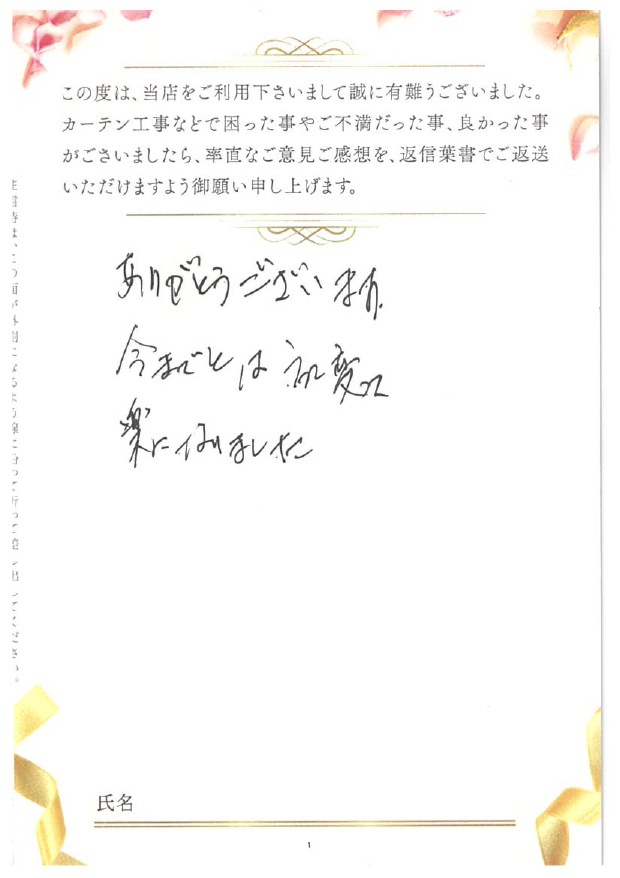 この度は、当店をご利用下さいまして誠に有難うございました。
カーテン工事などで困った事やご不満だった事、良かった事
がございましたら、率直なご意見ご感想を、返信葉書でご返送
いただけますよう御願い申し上げます。
ありがとうございます
今までとは 変って
楽になりました
氏名
1